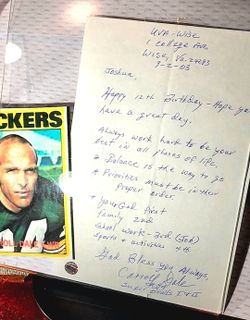 UVA-Wise
1 College Ave
Wise, Va. 24293
9-2-03
Joshua,
Happy 12th Birthday - Hope you
have a great day.
Always work hard to be your
best in all phases of life.
* Balance is the way to go
* Priorities must be in their
proper order.
* Your God First
Family 2nd
School work - 3rd (Job)
sports + activities 4th
God Bless you Always,
Carroll Dale
Super Bowls I + II
CKERS
ROLL DALE